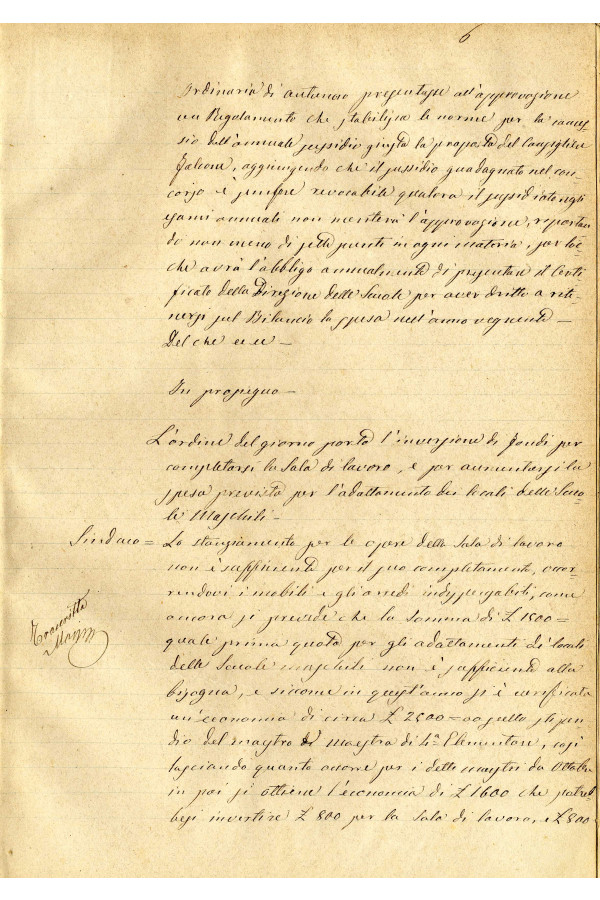 6
Ordinaria di autunno presentasse all'approvazione
un Regolamento che stabilisca le norme per la conces-
sio dell'annuale sussidio giusta la proposta del Consigliere
Falcone, aggiungendo che il sussidio guadagnato nel con-
corso è sempre revocabile qualora il sussidiato negli
esami annuali non meriterà l'approvazione, reportan-
do non meno di sette punti in ogni materia, per loc-
che avrà l'obbligo annualmente di presentare il Certi-
ficato della Direzione delle Scuole per aver dritto a rite-
nersi sul Bilancio la spesa nell'anno vegnente —
Del che ec ec —
In prosieguo —
L'ordine del giorno porta l'inversione di fondi per
completarsi la Sala di lavoro, e per aumentarsi la
spesa prevista per l'adattamento dei locali delle Scuo-
le Maschili —
Sindaco = Lo stanziamento per le opere della Sala di lavoro
non è sufficiente per il suo completamento, occor-
rendovi i mobili e gli arredi indispensabili, come
ancora si prevede che la somma di £ 1500 =
quale prima quota per gli adattamenti di locali
delle Scuole maschili non è sufficiente alla
bisogna, e siccome in quest'anno si è verificata
un'economia di circa £ 2500 = 00 sullo stipen-
dio del maestro e Maestra di 4ª Elementare, così
lasciando quanto occorre per i detti maestri da Ottobre
in poi si ottiene l'economia di £ 1600 che potreb-
besi invertire £ 800 per la Sala di lavoro, e £ 800
Trascritta